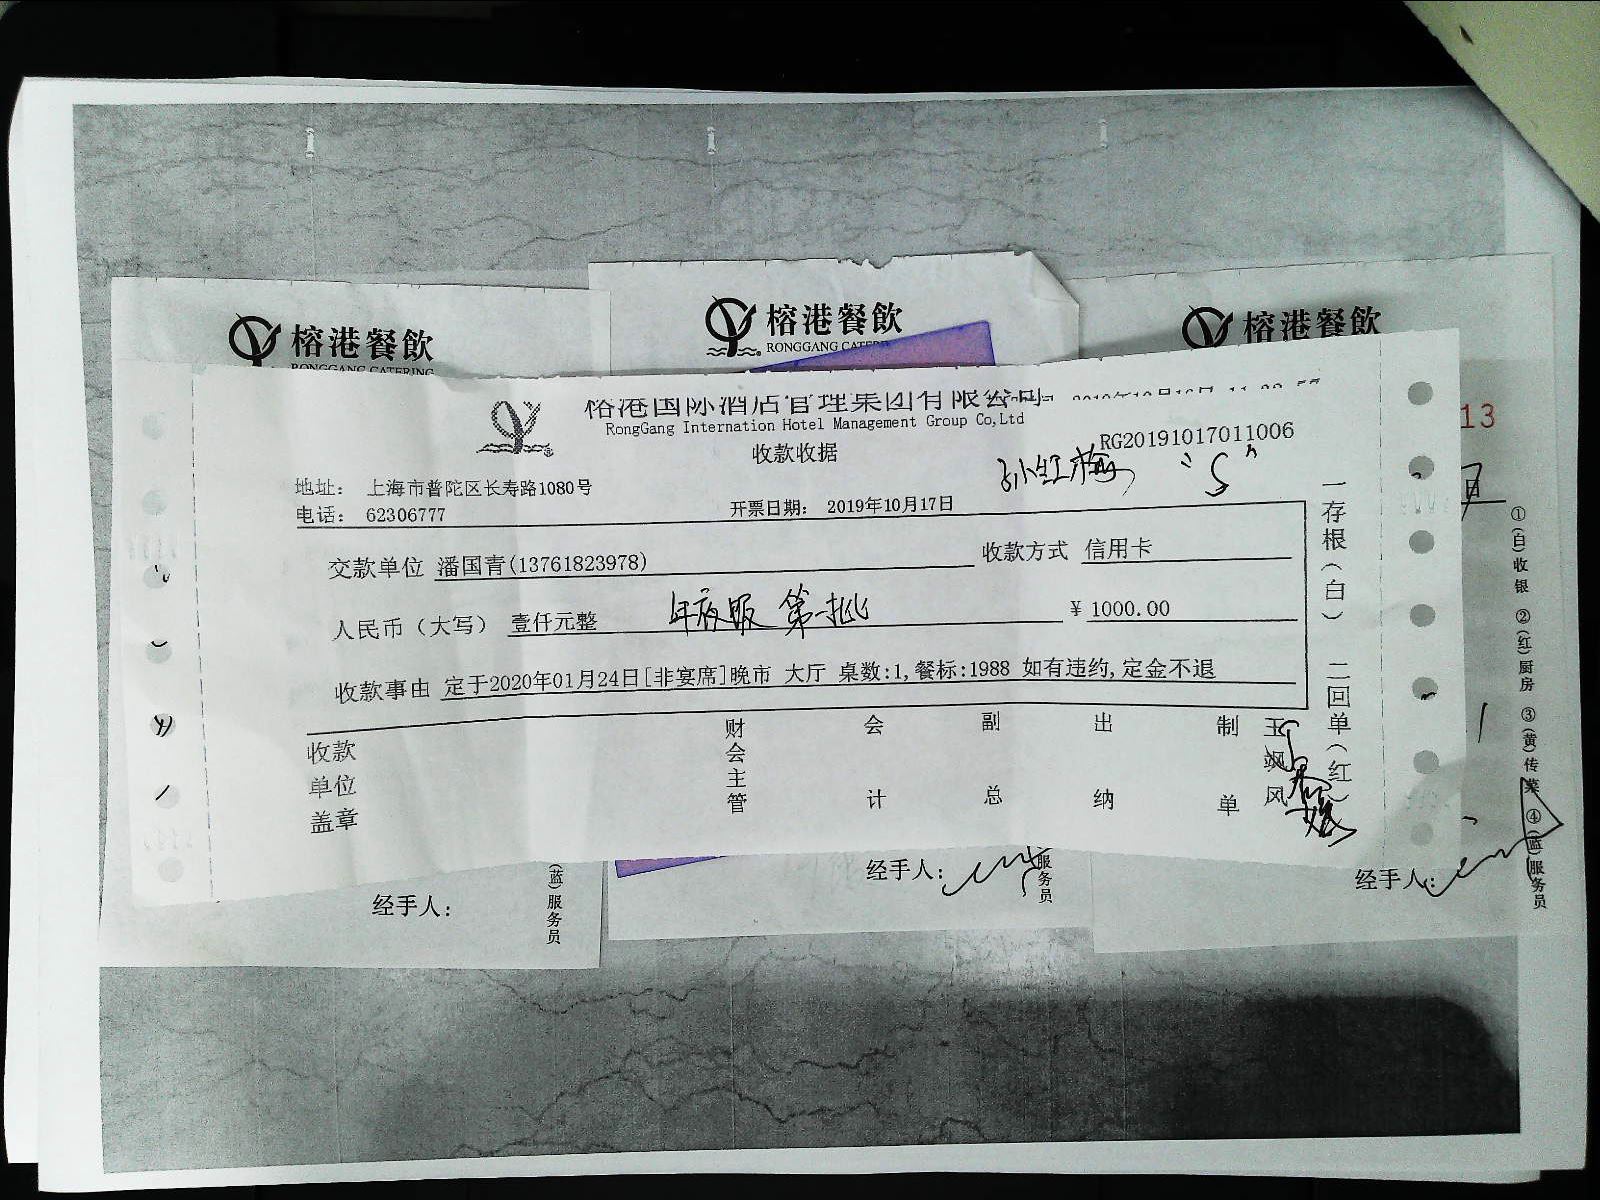 榕港餐飲
RONGGANG CATERING
榕港餐飲
RONGGANG
榕港餐飲
13
日
榕港国际酒店管理集团有限公司
RongGang Internation Hotel Management Group Co,Ltd
收款收据
RG20191017011006
孙红梅 "5"
地址： 上海市普陀区长寿路1080号
电话： 62306777
开票日期： 2019年10月17日
交款单位 潘国青(13761823978)
收款方式 信用卡
人民币（大写） 壹仟元整
年夜饭 第一批
¥ 1000.00
收款事由 定于2020年01月24日[非宴席]晚市 大厅 桌数:1,餐标:1988 如有违约,定金不退
收款单位盖章
财会主管
会计
副总
出纳
制单
王飒风
一存根（白） 二回单（红）
①(白)收银 ②(红)厨房 ③(黄)传菜 ④(蓝)服务员
经手人：
(蓝)服务员
经手人：
服务员
经手人：